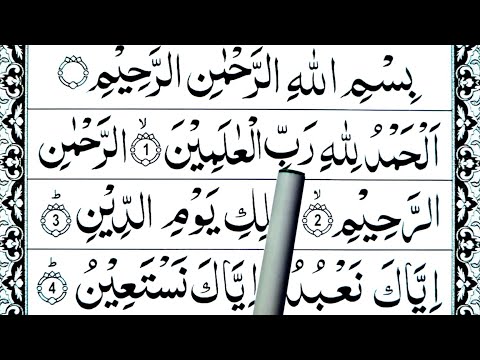 بِسْمِ اللّٰهِ الرَّحْمٰنِ الرَّحِيْمِ
اَلْحَمْدُ لِلّٰهِ رَبِّ الْعٰلَمِيْنَ ۙ1 الرَّحْمٰنِ
الرَّحِيْمِ ۙ2 لِكِ يَوْمِ الدِّيْنِ ؕ3
اِيَّاكَ نَعْبُدُ اِيَّاكَ نَسْتَعِيْنُ ؕ4